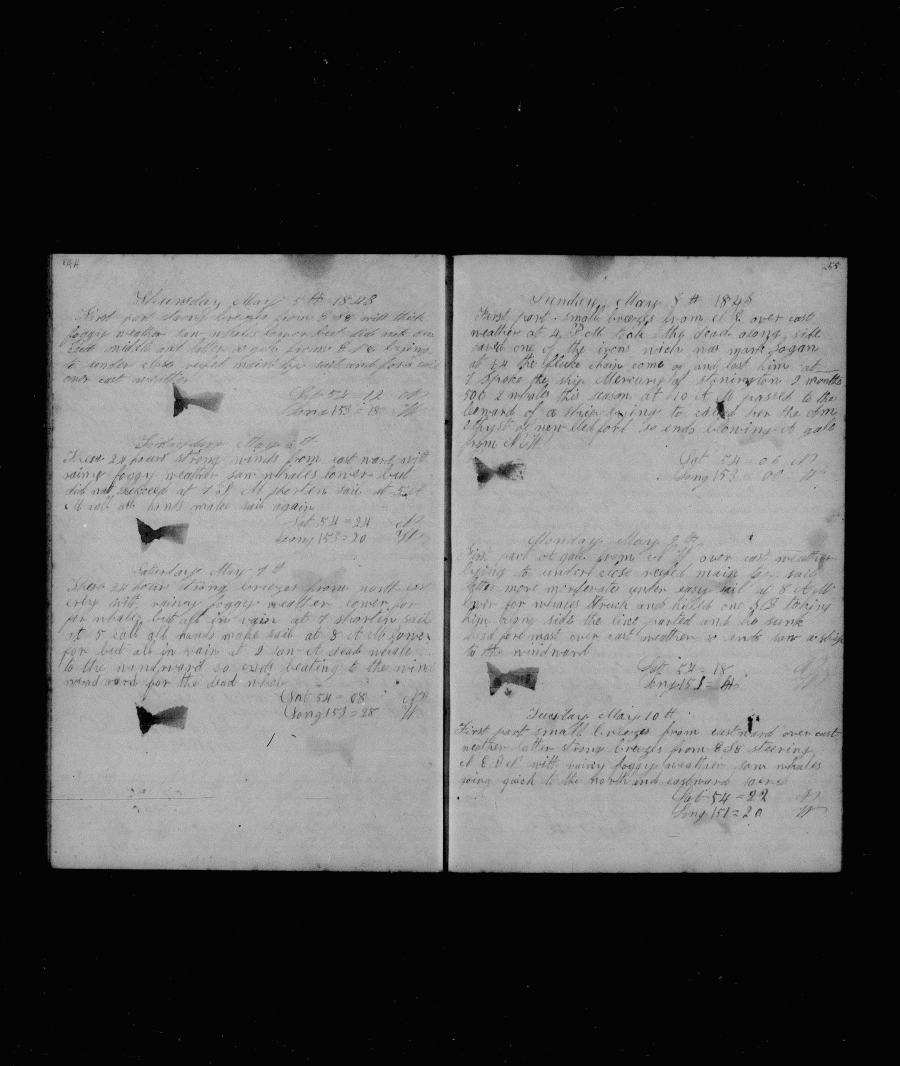 Thursday May 5th 1848
First part strong breezes from E S E with thick
foggy weather saw whales lower but did not
last middle and latter a gale from E S E lying
to under close reefed main top sail and fore sail
over cast weather
Lat 54 = 12 N
Long 153 = 18 W
May 6th
These 24 hours strong winds from eastward with
rainy foggy weather saw whales lower but
did not succeed at 7 P M shorten sail at
A M call all hands make sail again
Lat 54 = 24 N
Long 153 = 20 W
Saturday May 7th
These 24 hours strong breezes from north east
erly with rainy foggy weather lower for
for whales but all in vain at 7 shorten sail
at 5 call all hands make sail at 8 A M lower
for but all in vain at 2 saw A dead whale
to the windward so ends beating to the wind
wind ward for the dead whale
Lat 54 = 08 N
Long 153 = 28 W
55
Sunday May 8th 1848
First part small breezes from over cast
weather at 4 P M took the dead along side
saved one of the irons wich was mark
at the fluke chain come of and lost him at
7 Spoke the ship Mercury of Stonington 9 months
500 2 whales this season at 10 A M passed to the
leeward of a ship lying to called her the Am
ethyst of new Bedford so ends blowing A gale
from
Lat 54 = 06 N
Long 153 = 00 W
Monday May 9th
First part A gale from over cast weather
lying to under close reefed main top sail
latter more moderate under easy sail at 8 A M
lower for whales Struck and killed one taking
him along side the line parted and he sunk
over cast weather so ends saw a ship
to the windward
Lat 54 = 18 N
Long 153 = W
Tuesday May 10th
First part small breezes from eastward over cast
weather latter strong breezes from E S E steering
with rainy foggy weather saw whales
going quick to the north and eastward
Lat 54 = 22 N
Long 151 = 20 W